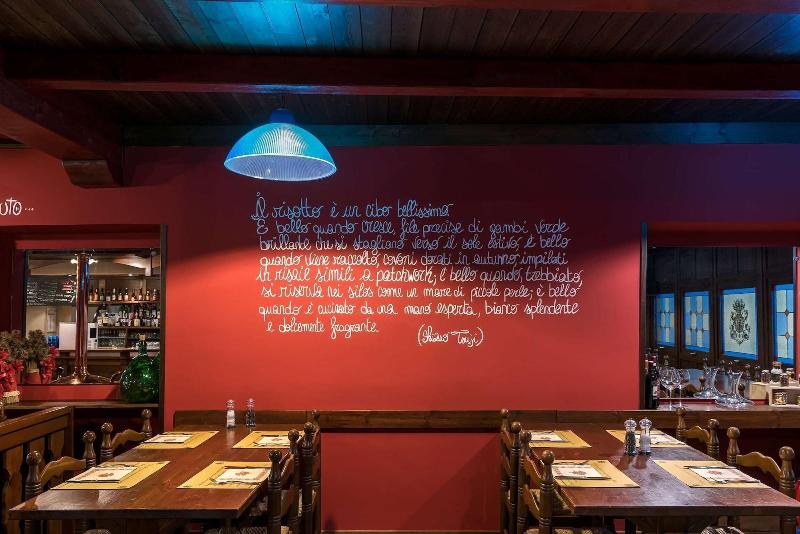 uto...
Il risotto è un cibo bellissimo
È bello quando cresce, file precise di gambi verde
brillante che si stagliano verso il sole estivo, è bello
quando viene raccolto, covoni dorati in autunno, impilati
in risaie simili a patchwork, è bello quando, trebbiato,
si riversa nei silos come un mare di piccole perle, è bello
quando è cucinato da una mano esperta, bianco splendente
e dolcemente fragrante